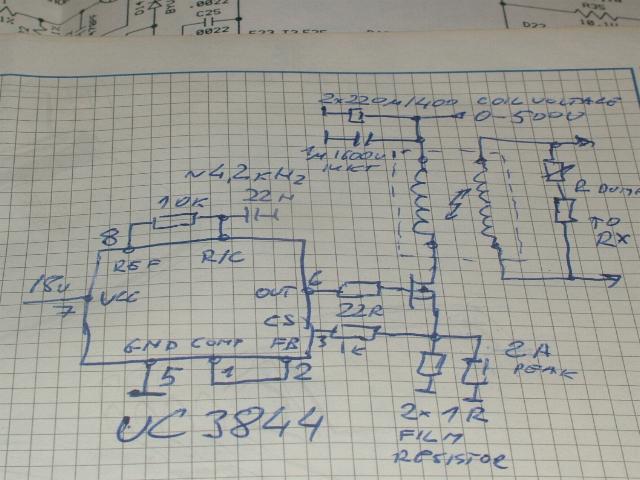 .0022
C25
.0022
R35
10.1
D22
2x220M/400
COIL VOLTAGE
0-500V
1M 1600V
MKT
~4,2 KHz
10K
22n
R DUMP
TO
RX
8
REF
R/C
15V
7
VCC
OUT
6
22R
CS
3
1K
GND
COMP
FB
5
1
2
2A
PEAK
UC 3844
2x 1R
FILM
RESISTOR